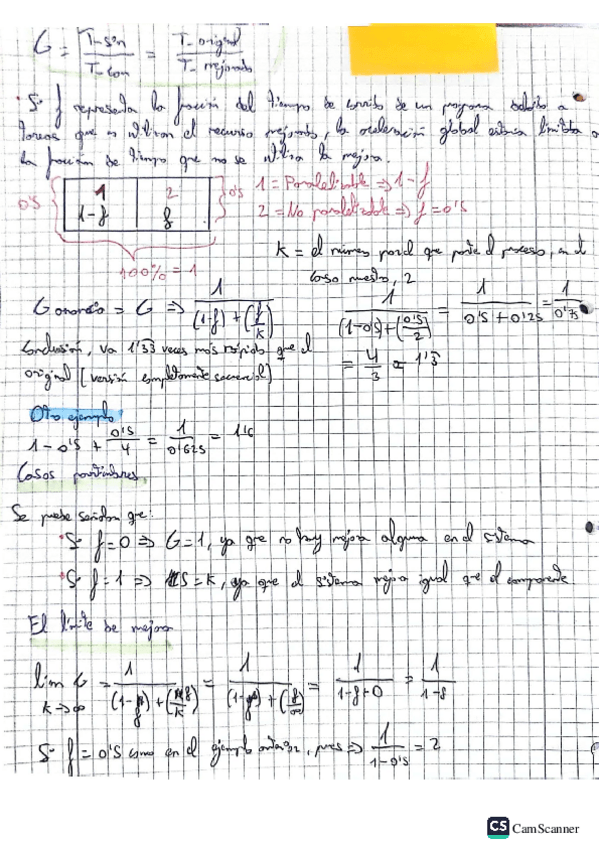 G = T-sin / T-con = T-original / T-mejorado
• Si f representa la fracción del tiempo de de un programa debido a
tareas que no utilizan el recurso mejorado, la aceleración global estaría limitada a
la fracción de tiempo que no se utiliza la mejora.
0'5 1 2 0'5 1 = Paralelizable => 1-f
1-f f 2 = No paralelizable => f = 0'5
100% = 1
K = el número por el que el proceso, en el
caso nuestro, 2
Ganancia = G => 1 / ((1-f) + (f/k)) 1 / ((1-0'5) + (0'5/2)) = 1 / (0'5 + 0'25) = 1 / 0'75
Conclusión, va 1'33 veces más rápido que el = 4/3 = 1'3
original (versión completamente secuencial)
Otro ejemplo
1 - 0'5 + 0'5/4 = 1/0'625 = 1'6
Casos particulares
Se puede señalar que:
• Si f=0 => G=1, ya que no hay mejora alguna en el sistema
• Si f=1 => S=k, ya que el sistema mejora igual que el componente.
El límite de mejora
lim G = 1 / ((1-f) + (f/k)) = 1 / ((1-f) + (f/∞)) = 1 / (1-f+0) = 1 / (1-f)
k→∞
Si f = 0'5 como en el ejemplo, pues => 1 / (1-0'5) = 2
CS CamScanner